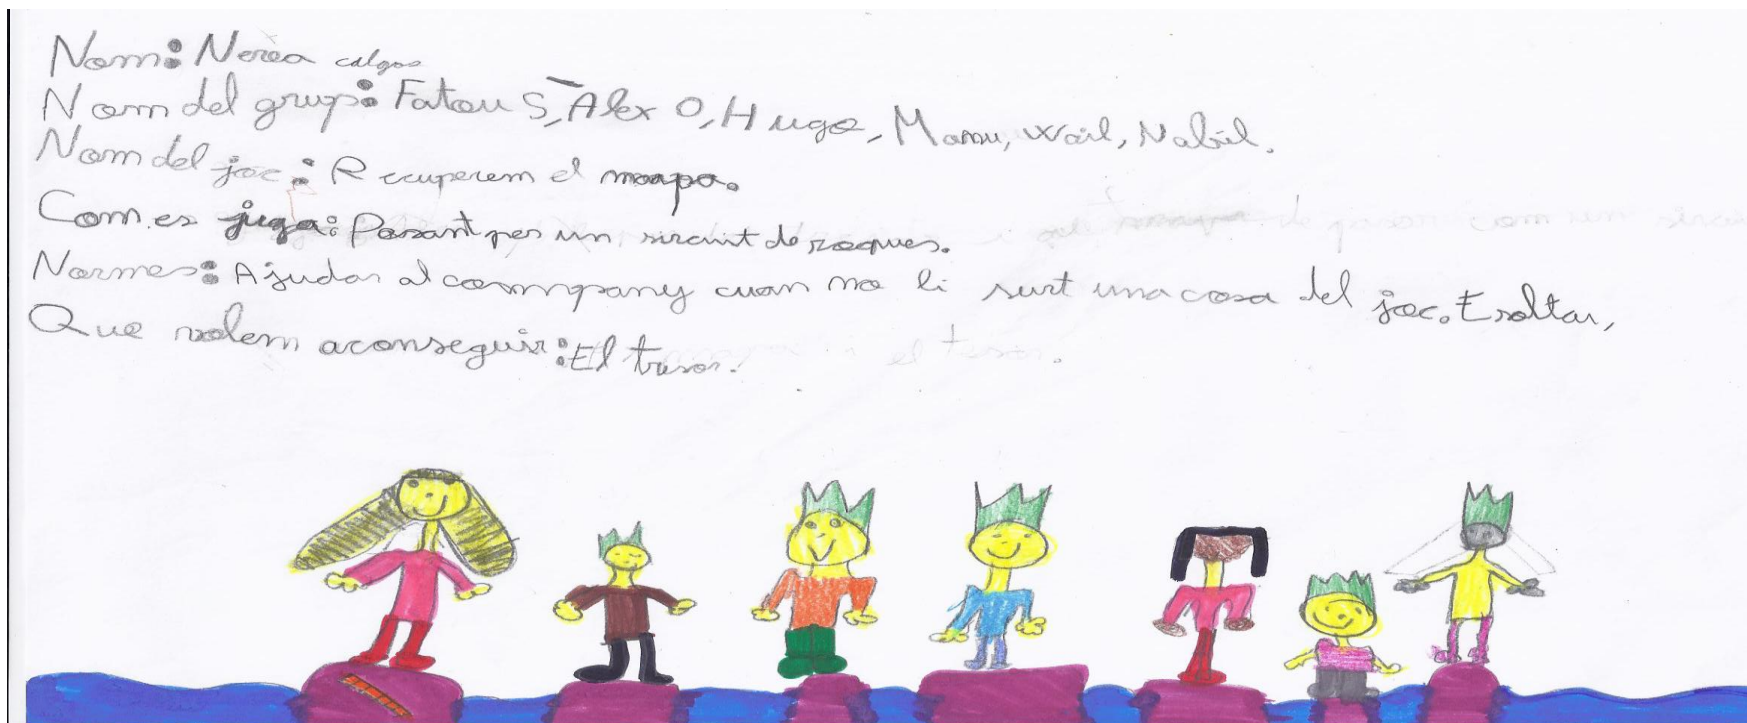 Nom: Nerea calgos
Nom del grup: Fatou S, Alex O, Hugo, Manu, Wail, Nabil.
Nom del joc: Recuperem el mapa.
Com es juga: Pasant per un sircuit de roques.
Normes: Ajudar al company cuan no li surt una cosa del joc. Esoltar,
Que volem aconseguir: El tresor.